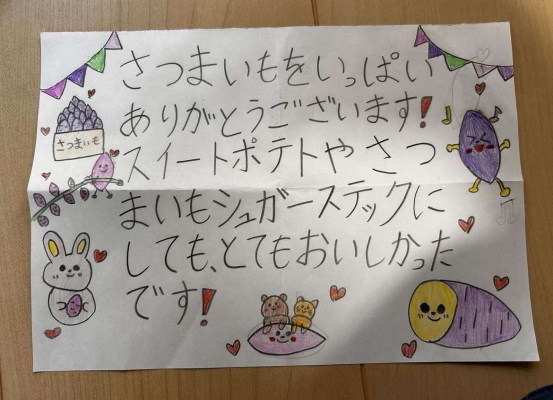 さつまいもをいっぱい
ありがとうございます!
さつまいも
スイートポテトやさつ
まいもシュガーステックに
しても、とてもおいしかった
です!